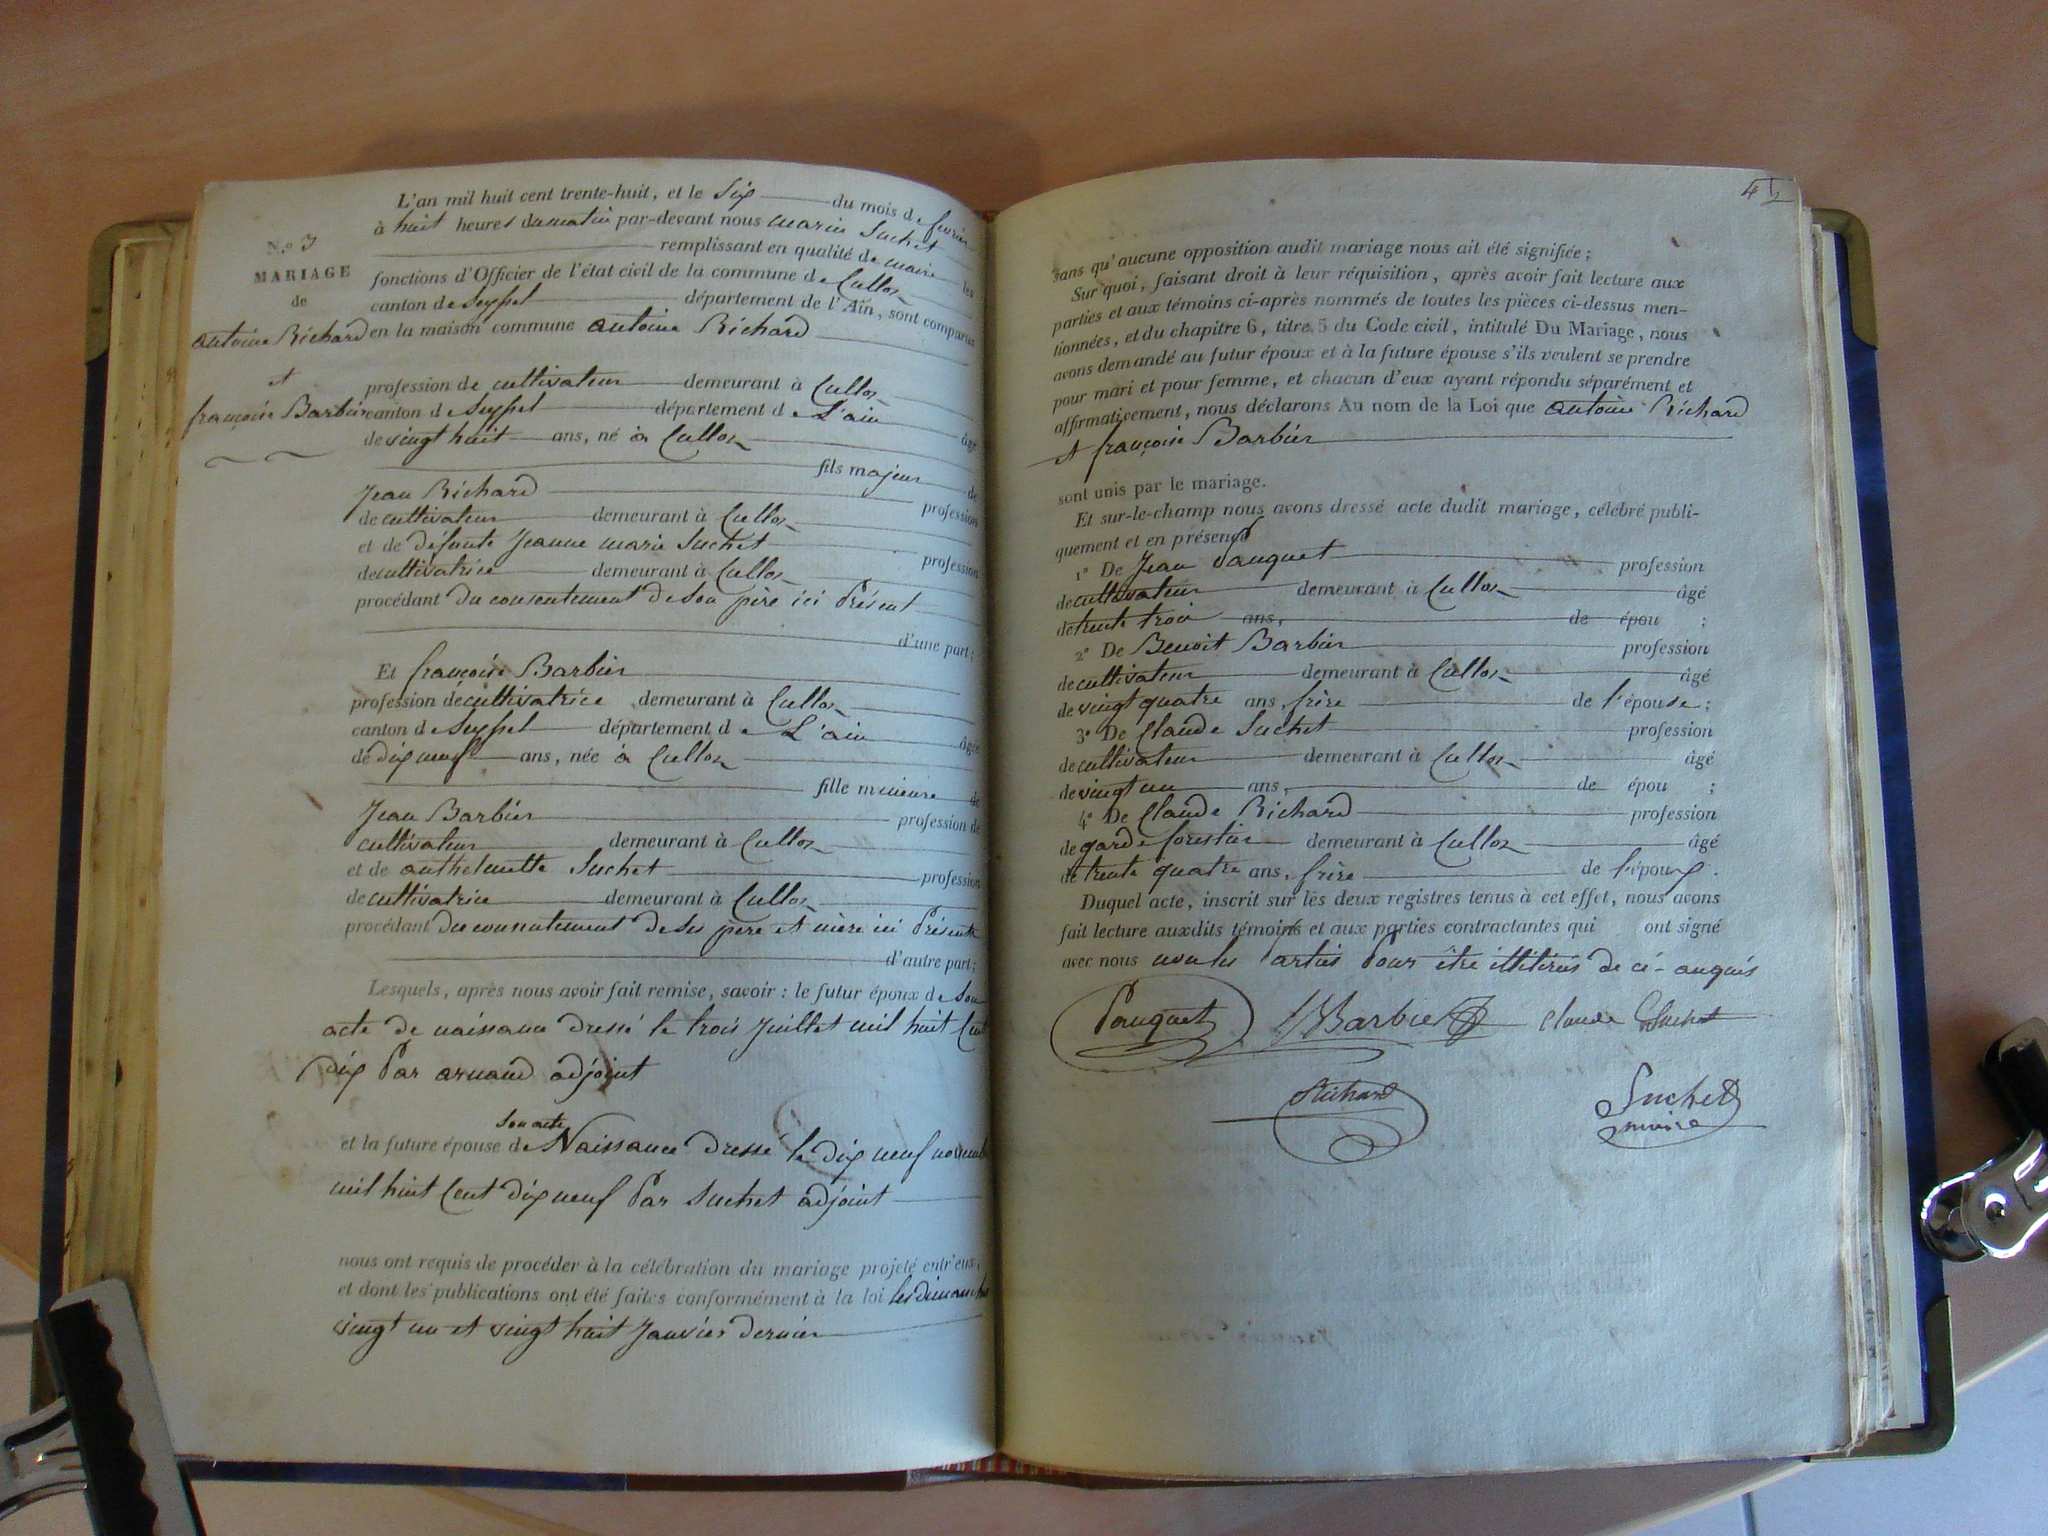 L'an mil huit cent trente-huit, et le six du mois de février
à huit heures du matin par-devant nous marin Suchet
remplissant en qualité de maire les
fonctions d'Officier de l'état civil de la commune de Culloz
canton de Seyssel département de l'Ain, sont comparus
en la maison commune antoine Richard
N.o 3
MARIAGE
de
antoine Richard
et
françoise Barbier
profession de cultivateur demeurant à Culloz
canton de Seyssel département de L'ain âgé
de vingt huit ans, né à Culloz
fils majeur de
Jean Richard profession
de cultivateur demeurant à Culloz
et de défunte Jeanne marie Suchet profession
de cultivatrice demeurant à Culloz
procédant du consentement de son père ici Présent
d'une part;
Et françoise Barbier
profession de cultivatrice demeurant à Culloz
canton de Seyssel département de L'ain âgée
de dix neuf ans, née à Culloz
fille mineure de
Jean Barbier profession de
cultivateur demeurant à Culloz
et de anthelmette Suchet profession
de cultivatrice demeurant à Culloz
procédant du consentement de ses père et mère ici Présents
d'autre part;
Lesquels, après nous avoir fait remise, savoir: le futur époux de son
acte de naissance dressé le trois Juillet mil huit Cent
dix Par arnaud adjoint
son acte
et la future épouse de Naissance dressé le dix neuf novembre
mil huit Cent dix neuf Par Suchet adjoint
nous ont requis de procéder à la célébration du mariage projeté entr'eux,
et dont les publications ont été faites conformément à la loi les dimanches
vingt un et vingt huit Janvier dernier
42
sans qu'aucune opposition audit mariage nous ait été signifiée;
Sur quoi, faisant droit à leur réquisition, après avoir fait lecture aux
parties et aux témoins ci-après nommés de toutes les pièces ci-dessus men-
tionnées, et du chapitre 6, titre 5 du Code civil, intitulé Du Mariage, nous
avons demandé au futur époux et à la future épouse s'ils veulent se prendre
pour mari et pour femme, et chacun d'eux ayant répondu séparément et
affirmativement, nous déclarons Au nom de la Loi que antoine Richard
et françoise Barbier
sont unis par le mariage.
Et sur-le-champ nous avons dressé acte dudit mariage, célébré publi-
quement et en présence
1o De Jean Pauquet profession
de cultivateur demeurant à Culloz âgé
de trente trois ans, de épou ;
2o De Benoit Barbier profession
de cultivateur demeurant à Culloz âgé
de vingt quatre ans, frère de l'épouse;
3o De Claude Suchet profession
de cultivateur demeurant à Culloz âgé
de vingt un ans, de épou ;
4o De Claude Richard profession
de garde forestier demeurant à Culloz âgé
de trente quatre ans, frère de l'époux.
Duquel acte, inscrit sur les deux registres tenus à cet effet, nous avons
fait lecture auxdits témoins et aux parties contractantes qui ont signé
avec nous non les Parties Pour être illitérés de ce anquis
Pauquet Barbier Claude Suchet
Richard Suchet
maire